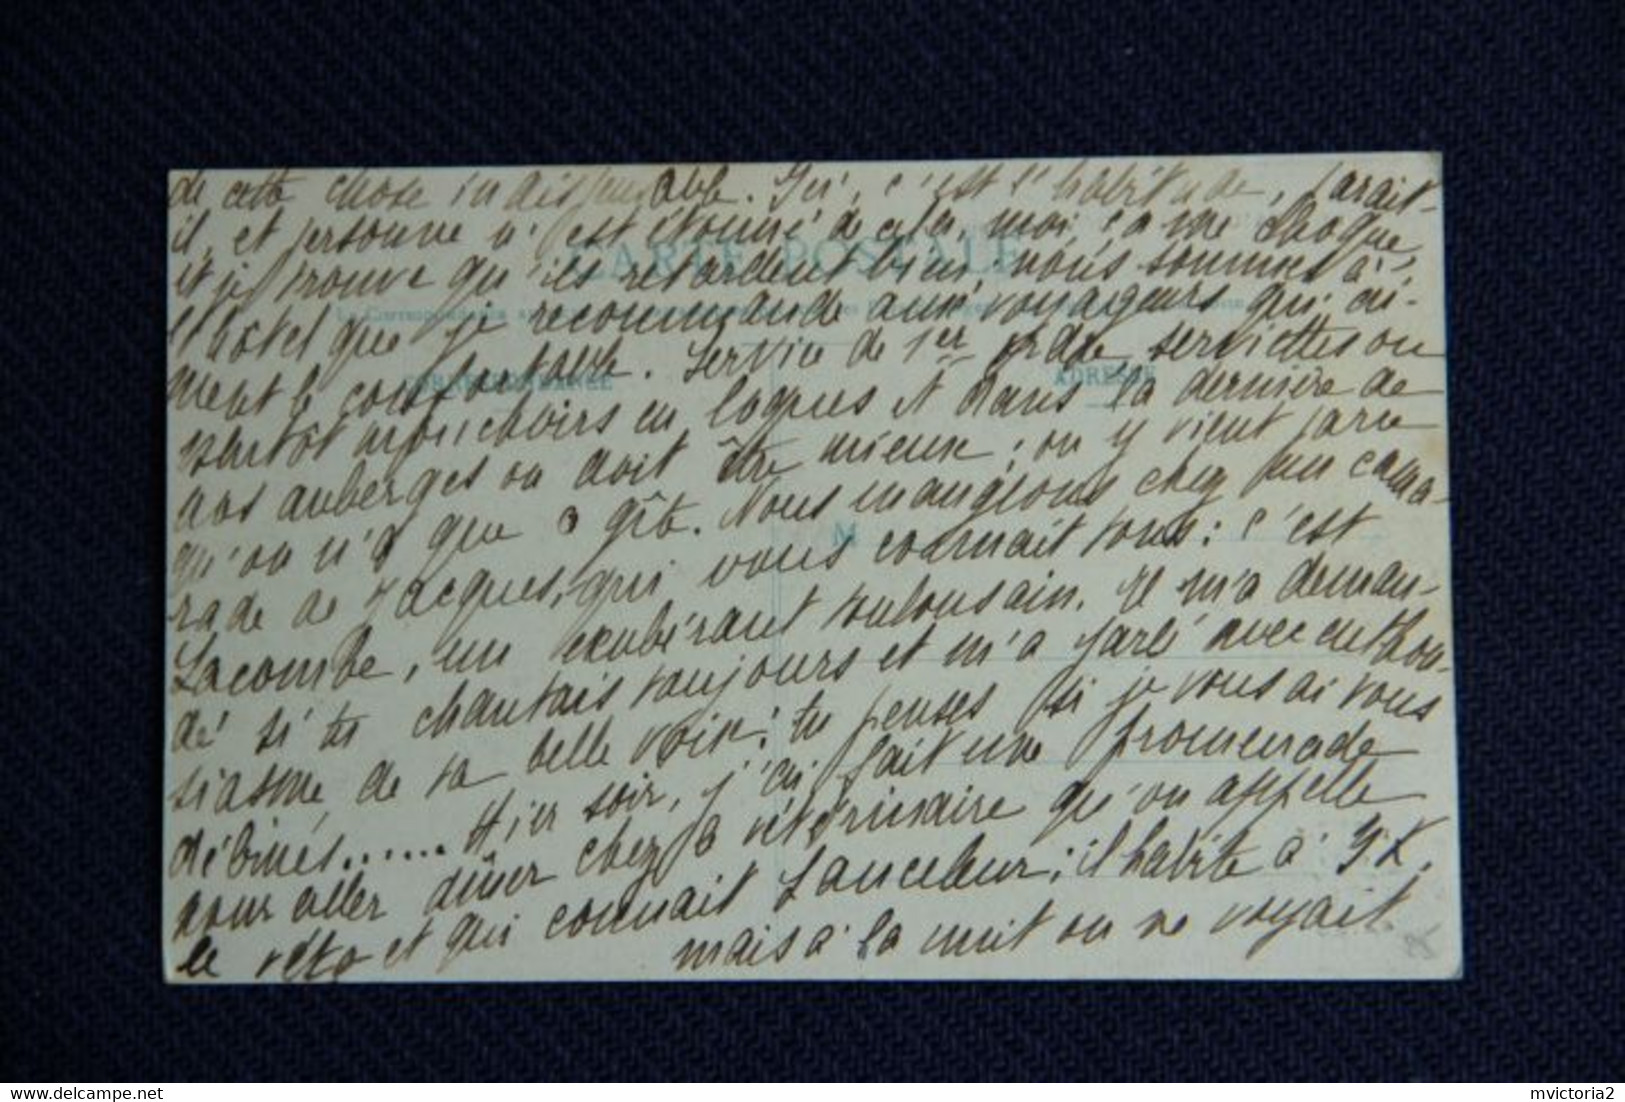 de cette chose indispensable. Ici, c'est l'habitude, parait-
il, et personne n'est étonné de cela, moi ça me choque
et je trouve qu'ils retardent bien. nous sommes à
l'hôtel que je recommande aux voyageurs qui ai-
ment le confortable. Service de 1er ordre serviettes ou
plutôt mouchoirs en loques et dans la dernière de
nos auberges on doit être mieux; on y vient parce
qu'on n'a que ce gîte. Nous mangeons chez un cama-
rade de Jacques, qui vous connait tous: c'est
Lacombe, un exubérant toulousain. Il m'a deman-
dé si tu chantais toujours et m'a parlé avec enthou-
siasme, de ta belle voix; tu penses si je vous ai vous
débinés...... Hier soir, j'ai fait une promenade
pour aller dîner chez le vétérinaire qu'on appelle
le véto et qui connait Lanceleur; il habite à
mais à la nuit on ne voyait.
CARTE POSTALE
CORRESPONDANCE
ADRESSE
M
85
mvictoria2